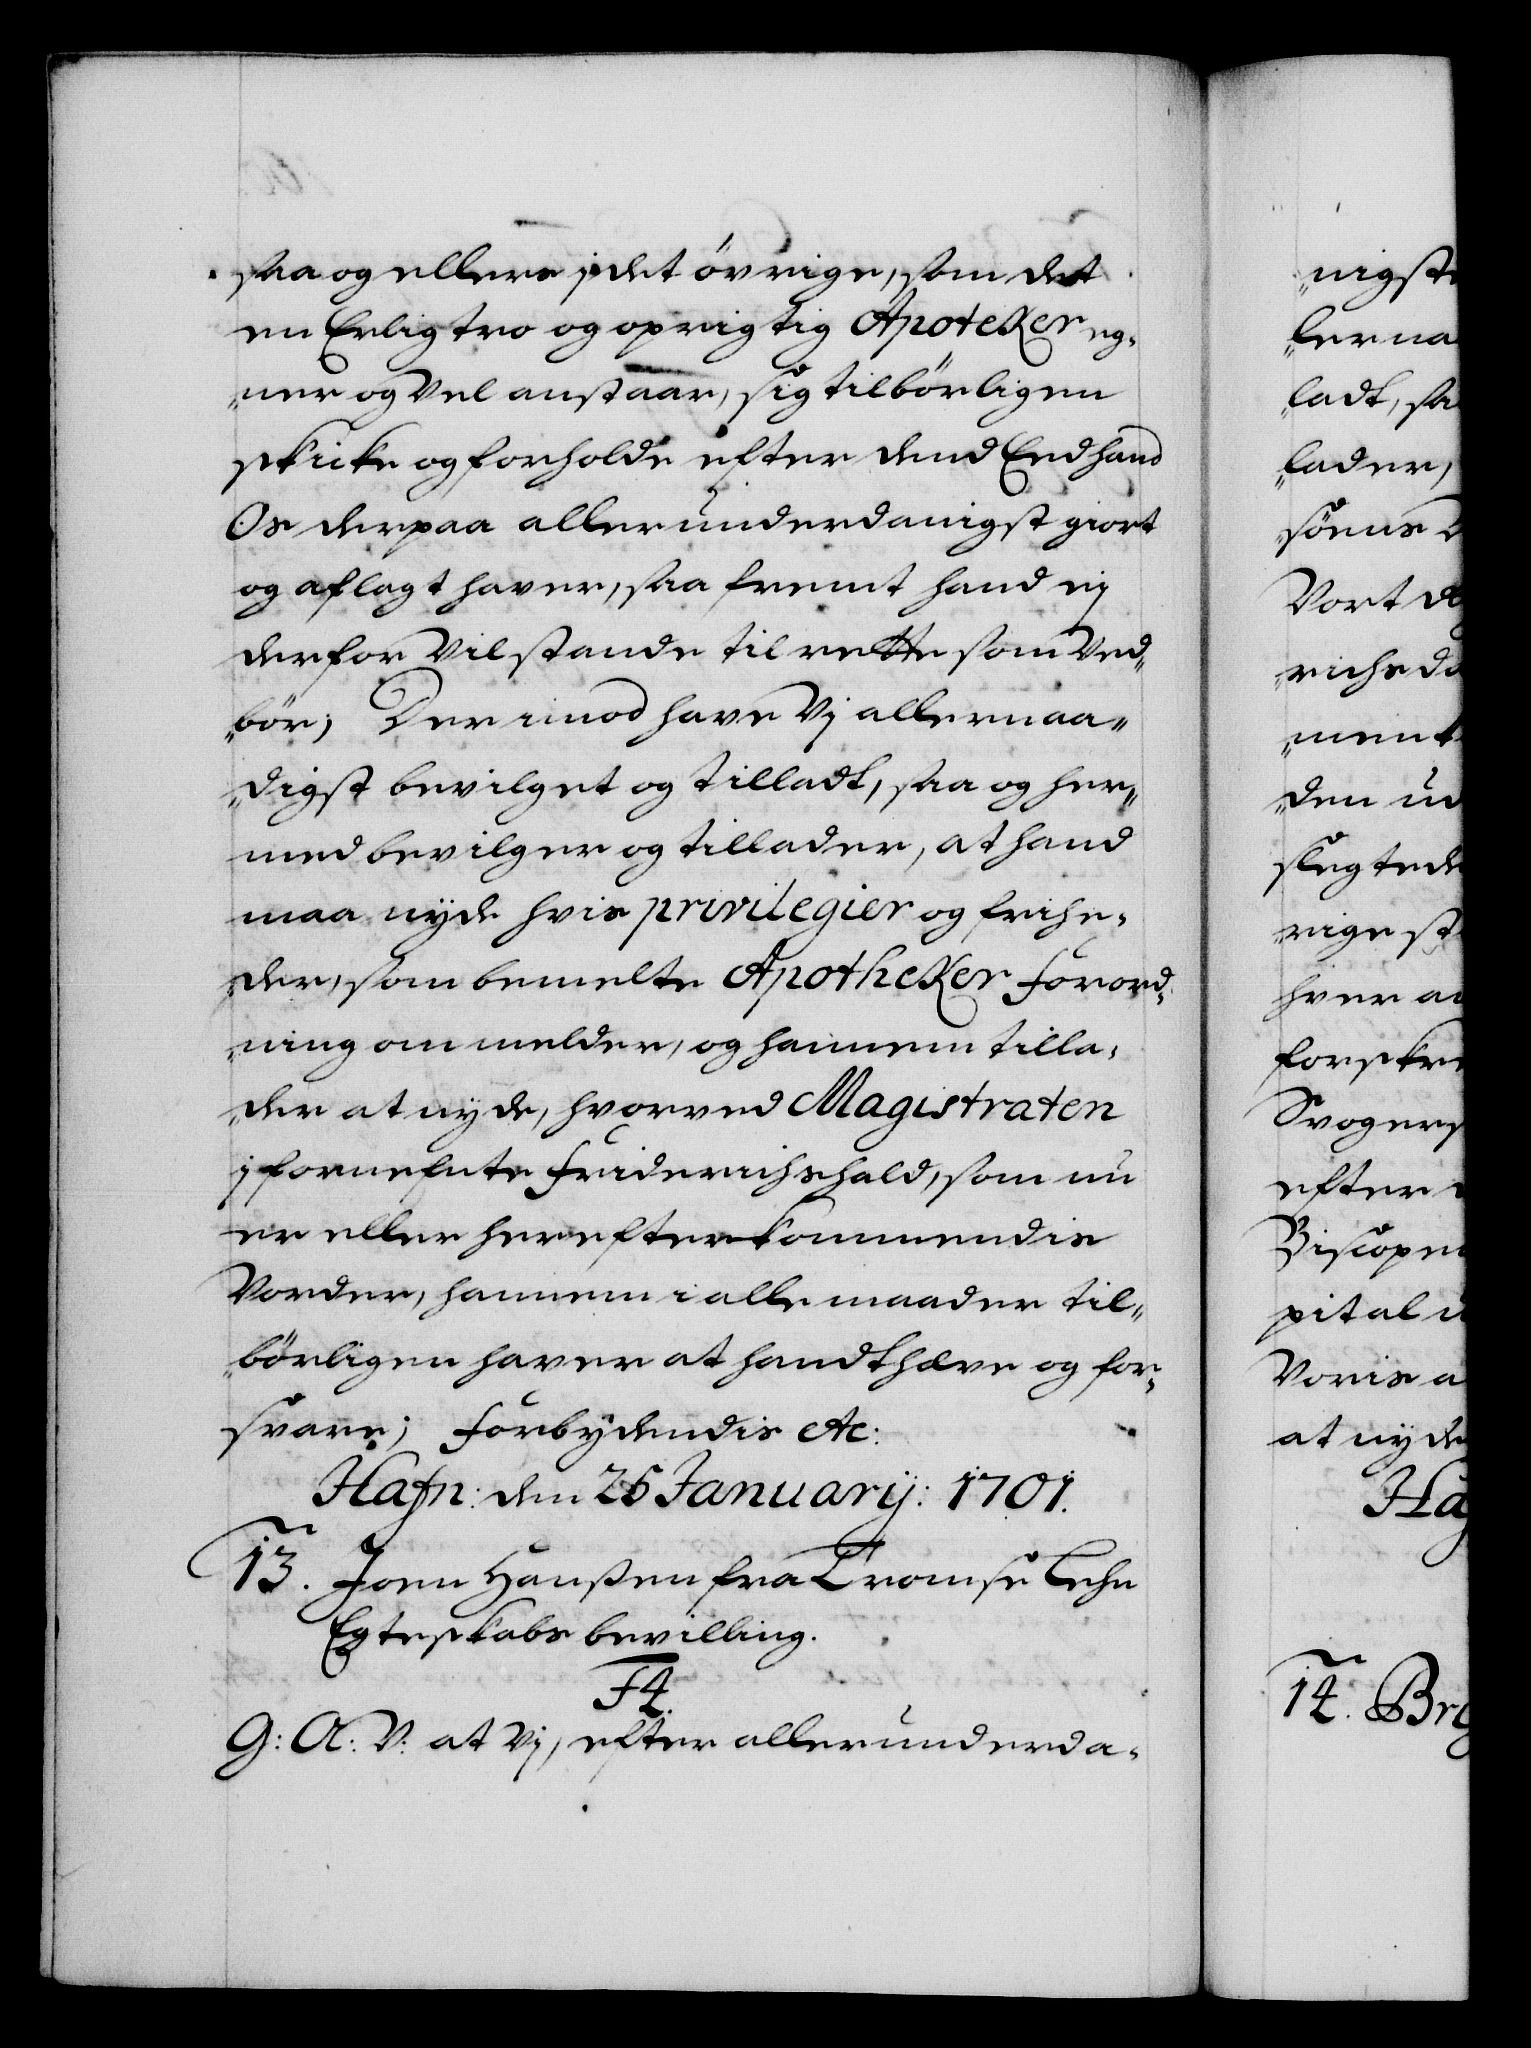 saa og ellers j det övrige, som det
en Erlig tro og oprigtig Apoteker eg„
„ner og vel anstaar, sig tilbörligen
skicke og forholde efter dend Eed hand
Os derpaa allerunderdanigst giort
og aflagt haver, saa fremt hand ej
derfor vil stande til rette som ved„
„bör; Der imod have Vj allernaa„
„digst bevilget og tilladt, saa og her„
med bevilger og tillader, at hand
maa nyde hvis privilegier og frihe„
„der, som bemelte Apotheker forord„
„ning om melder, og hannem tilla„
„der at nyde, hvorved Magistraten
j fornefnte Friderichshald, som nu
er eller herefter kommendis
Vorder, hannem i alle maader til„
„börligen haver at handthæve og for„
svare; Forbydendis etc:
Hafn: den 25 Januarij: 1701.
13. Joen Hanßen fra Tromsø Lehn
Egteskabs bevilling.
F4.
G: A: V: at Vj, efter allerunderda„
„nigste
„lerna
„ladt, sa
„lader,
„söens
Vort d
„richs da
„ment
„den ud
slegted
„rige st
hver a
forskre
Svogers
efter
Biscopen
pital u
Voris a
at nyde
Ha
14. Br